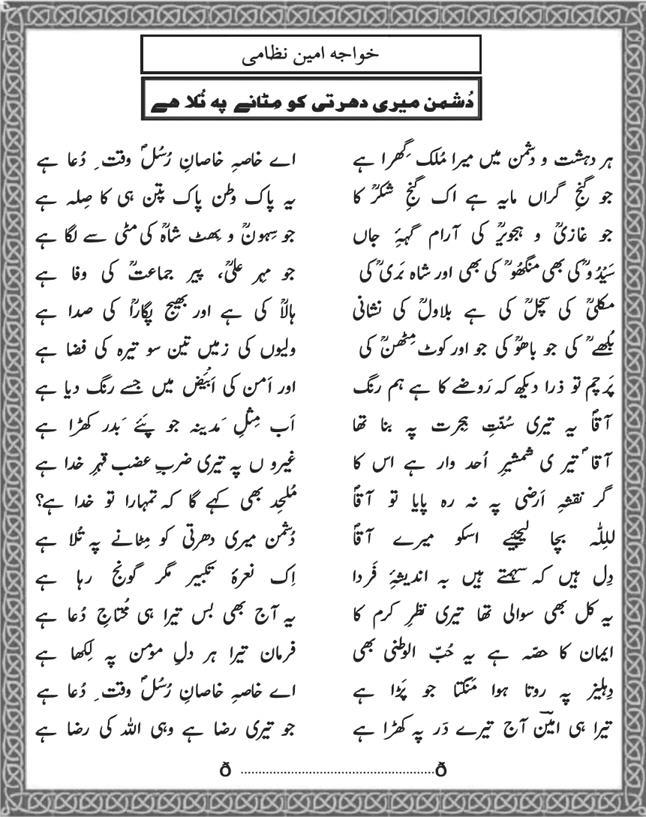 خواجہ امین نظامی
دُشمن میری دھرتی کو مِٹانے پہ تُلا ھے
ہر دہشت و دشمن میں میرا مُلک گِھرا ہے اے خاصہِ خاصانِ رُسُلؐ وقتِ دُعا ہے
جو گنجِ گراں مایہ ہے اک گنجِ شکرؒ کا یہ پاک وطن پاک پتن ہی کا صِلہ ہے
جو غازیؒ و ہجویرؒ کی آرام گہۂ جاں جو سِہونؒ و بھٹ شاہؒ کی مٹی سے لگا ہے
سَیْدُوؒ کی بھی منگھوؒ کی بھی اور شاہ بَریؒ کی جو مہر علیؒ، پیر جماعتؒ کی وفا ہے
مکلیؒ کی سچلؒ کی ہے بلاولؒ کی نشانی ہالاؒ کی ہے اور بھیج پگاراؒ کی صدا ہے
بُلھےؒ کی جو باھوؒ کی جو اور کوٹ مِٹھنؒ کی ولیوں کی زمیں تین سو تیرہ کی فضا ہے
پَرچم تو ذرا دیکھ کہ رَوضے کا ہے ہم رنگ اور اَمن کی اَبْیَض میں جسے رنگ دیا ہے
آقاؐ یہ تیری سُنّتِ ہِجرت پہ بنا تھا اَب مِثلِ مَدینہ جو پَئے بَدر کھڑا ہے
آقاؐ تیری شمشیرِ اُحد وار ہے اس کا غیروں پہ تیری ضربِ عضب قہرِ خدا ہے
گر نقشہِ اَرضی پہ نہ رہ پایا تو آقاؐ مُلحِد بھی کہے گا کہ تمہارا تو خدا ہے؟
للِلّٰہ بچا لیجئیے اسکو میرے آقاؐ دُشمن میری دھرتی کو مِٹانے پہ تُلا ہے
دِل ہیں کہ سہمتے ہیں بہ اندیشۂِ فَردا اِک نعرۂ تکبیر مگر گونج رہا ہے
یہ کل بھی سوالی تھا تیری نظرِ کرم کا یہ آج بھی بس تیرا ہی مُحتاجِ دُعا ہے
ایمان کا حصّہ ہے یہ حُبّ الوطنی بھی فرمان تیرا ہر دلِ مؤمن پہ لِکھا ہے
دِہلیز پہ روتا ہوا مَنگتا جو پَڑا ہے اے خاصہِ خاصانِ رُسُلؐ وقتِ دُعا ہے
تیرا ہی امینؔ آج تیرے دَر پہ کھڑا ہے جو تیری رضا ہے وہی اللہ کی رضا ہے